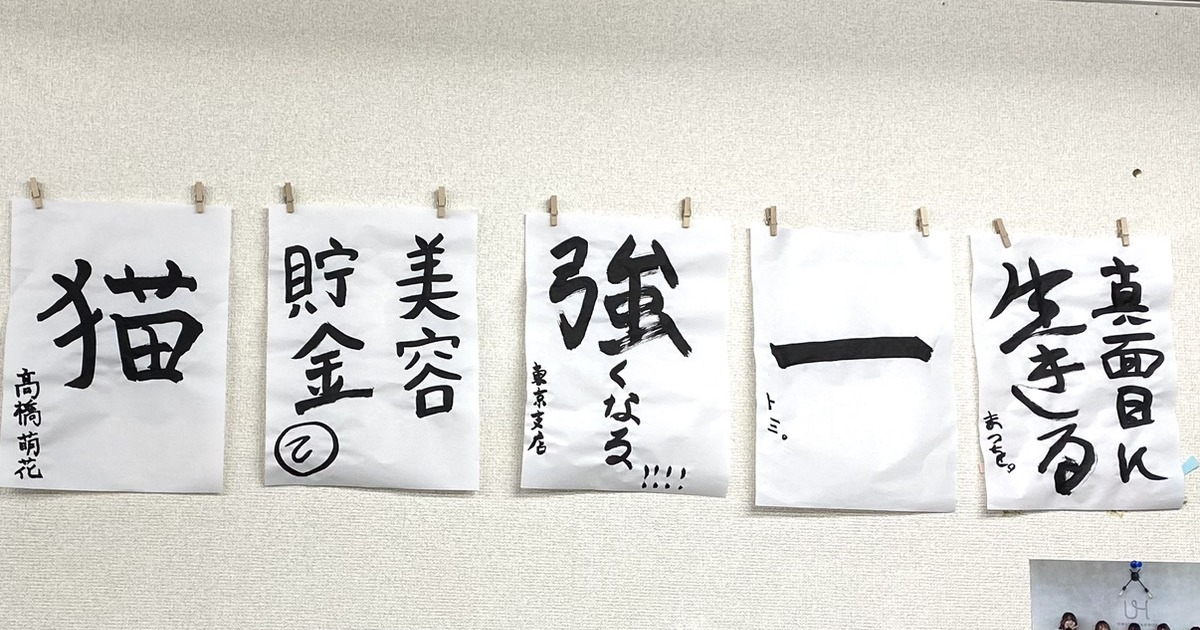 猫
高橋萌花
美容
貯金
強くなる!!!!
東京支店
一
トミ。
真面目に
生きる